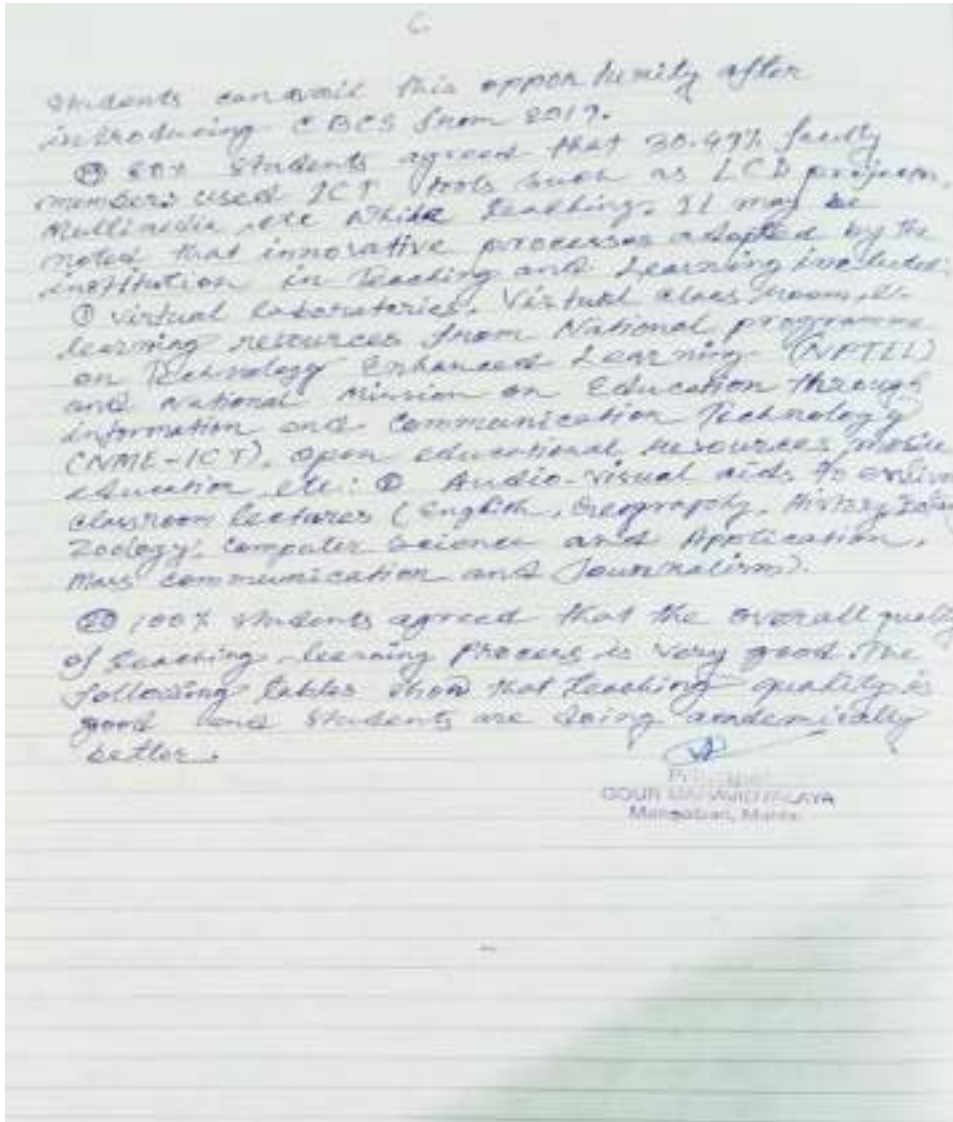 6
students can avail this opportunity after
introducing CBCS from 2017.
⑲ 60% students agreed that 30.49% faculty
members used ICT tools such as LCD projectors,
Multimedia etc while teaching. It may be
noted that innovative processes adopted by the
institution in Teaching and Learning include:
① virtual laboratories, Virtual class room, e-
learning resources from National programme
on Technology Enhanced Learning (NPTEL)
and National Mission on Education through
information and Communication Technology
(NME-ICT), open educational resources, mobile
education etc: ② Audio-visual aids to enliven
classroom lectures (English, Geography, History,
Zoology, Computer Science and Application,
Mass communication and Journalism).
⑳ 100% students agreed that the overall quality
of teaching-learning process is very good. The
following tables show that teaching quality is
good and students are doing academically
better.
Principal
GOUR MAHAVIDYALAYA
Mangalbari, Malda